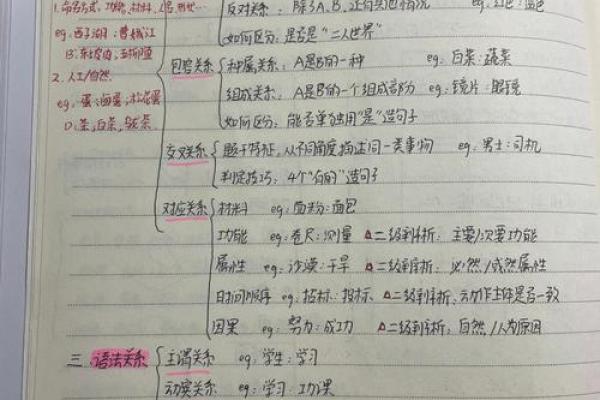 1. 命名方式、功能、材料、人名、形状…
eg: 西子湖：曹娥江
B: 东坡肉：五柳鱼
2. 人工/自然
eg: 蛋：卤蛋；松花蛋
D: 菜：白菜；酸菜
反对关系：除了A、B, 还有其他情况 eg: 红色：蓝色
如何区分：是否是“二人世界”
包容关系
种属关系：A是B的一种 eg: 白菜：蔬菜
组成关系：A是B的一个组成部分 eg: 镜片：眼镜
如何区分：能否单独用“是”造句子
交叉关系
题干特征，从不同角度描述同一类事物 eg: 男士：司机
判定技巧：4个“有的”造句子
对应关系
材料 eg: 面粉：面包
功能 eg: 卷尺：测量 △二级辨析：主要/次要功能
属性 eg: 沙漠：干旱 △二级辨析：必然/或然属性
时间顺序 eg: 招标：投标 △二级辨析、动作主体是否一致
因果 eg: 努力：成功 △二级辨析：自然/人为原因
三. 语法关系
主谓关系 eg: 学生：学习
动宾关系 eg: 学习：功课